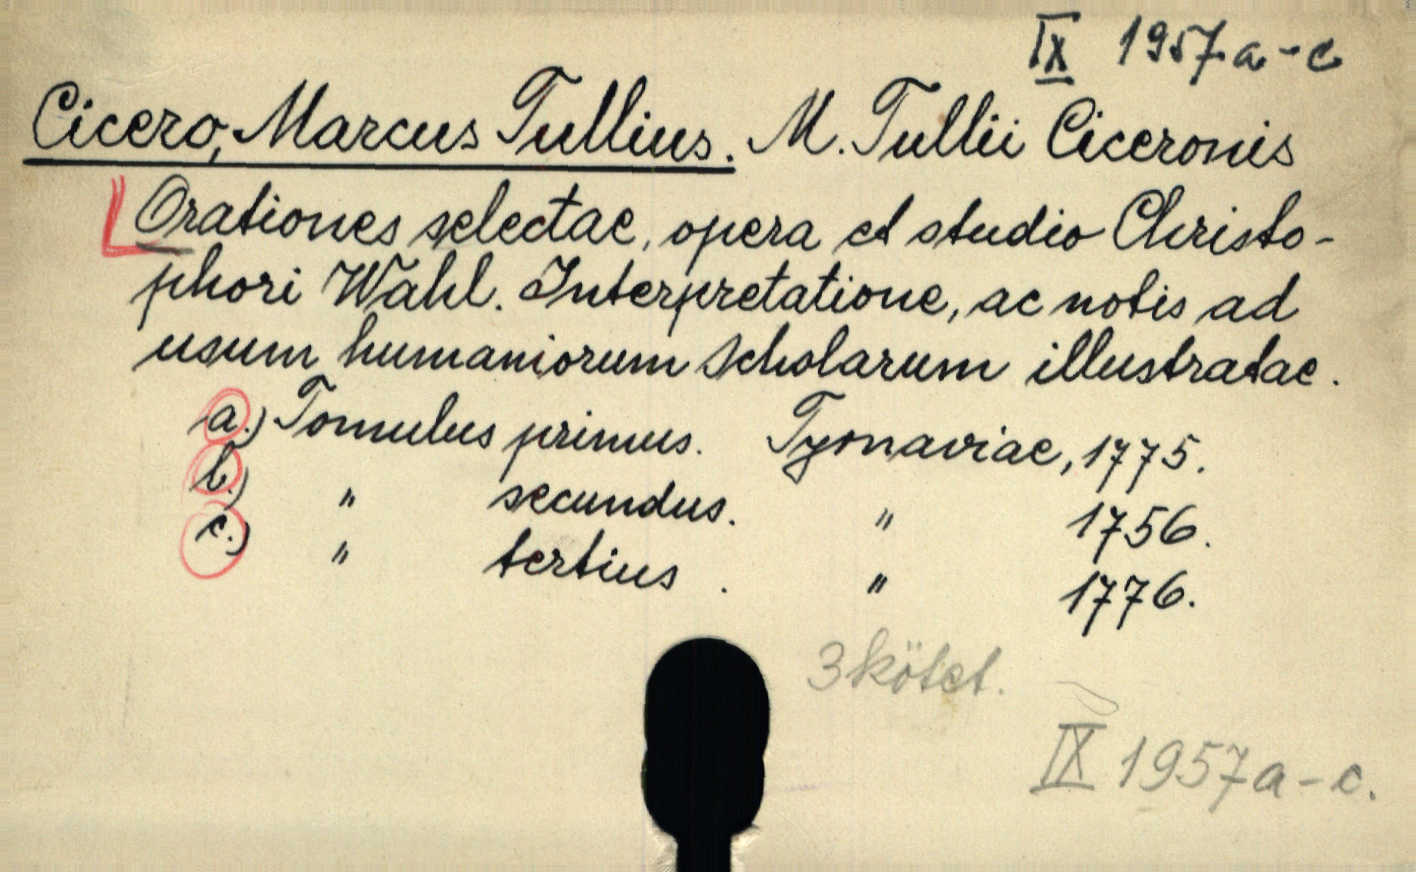 IX 1957 a-c
Cicero, Marcus Tullius. M. Tullii Ciceronis
Orationes selectae, opera et studio Christo-
phori Wahl. Interpretatione, ac notis ad
usum humaniorum scholarum illustratae.
a.) Tomulus primus. Tyrnaviae, 1775.
b.) " secundus. " 1756.
c.) " tertius. " 1776.
3 kötet.
IX 1957 a-c.